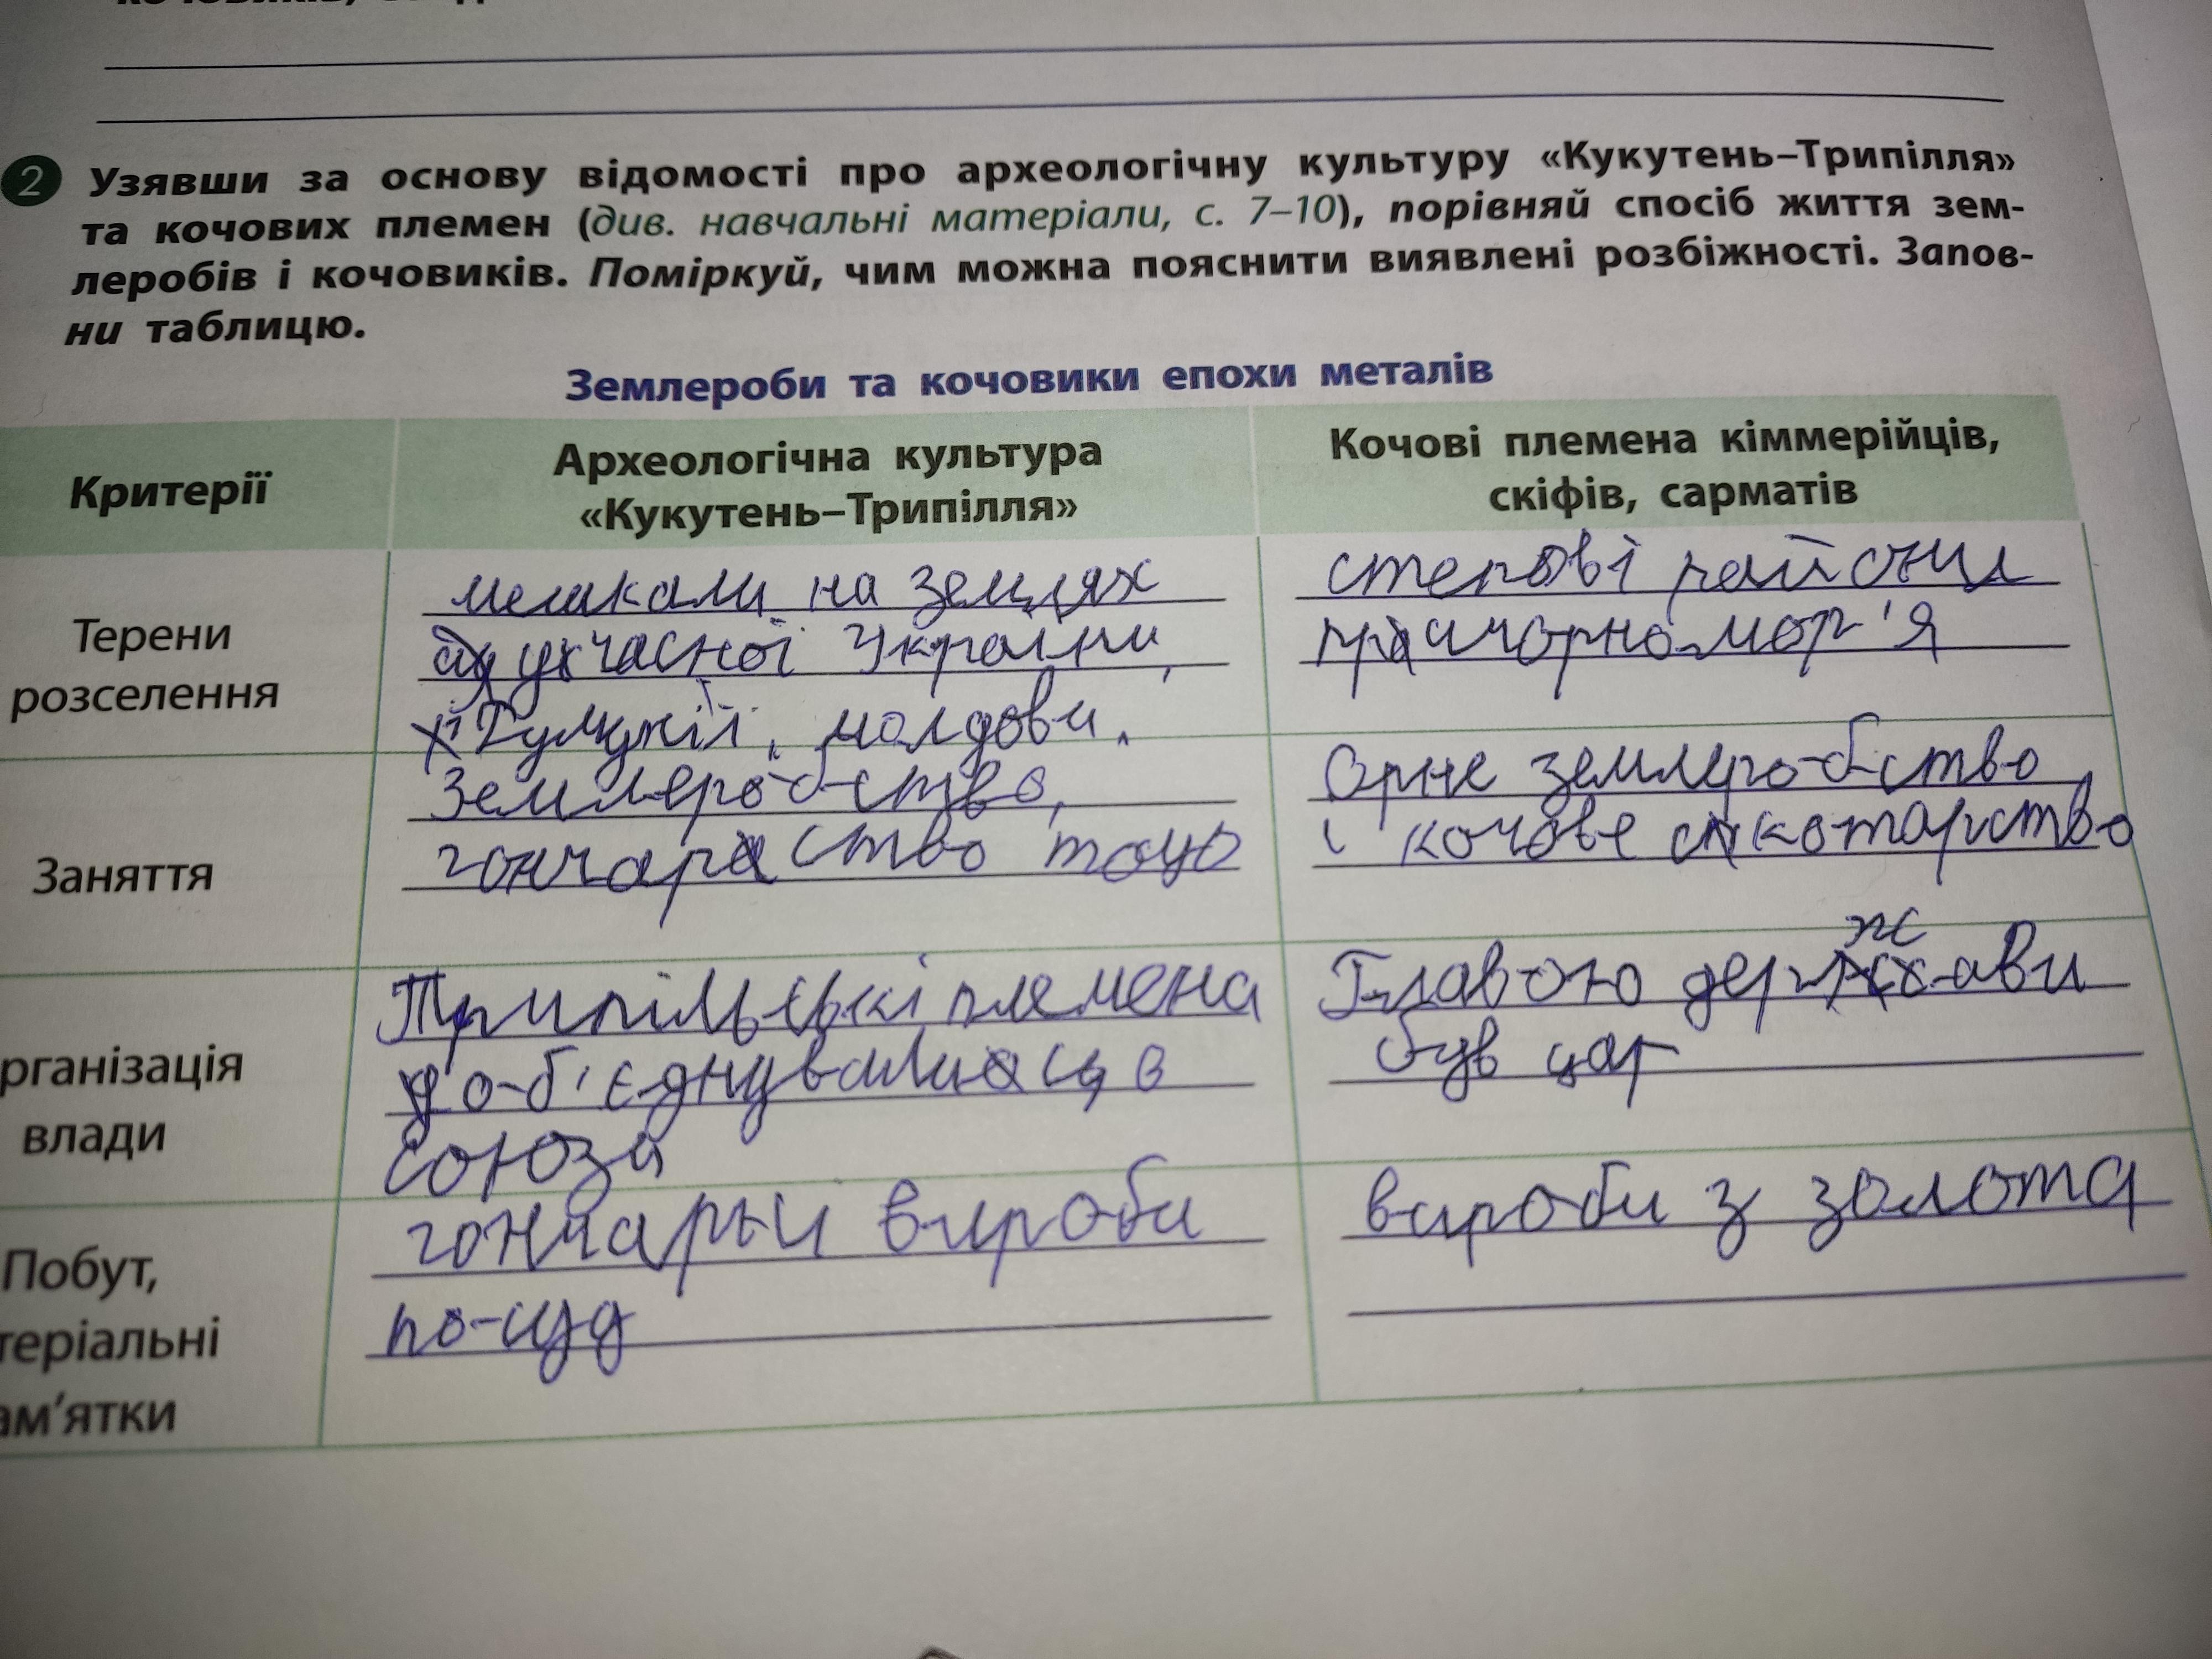 2 Узявши за основу відомості про археологічну культуру «Кукутень–Трипілля»
та кочових племен (див. навчальні матеріали, с. 7–10), порівняй спосіб життя зем-
леробів і кочовиків. Поміркуй, чим можна пояснити виявлені розбіжності. Запов-
ни таблицю.
Землероби та кочовики епохи металів
Критерії
Археологічна культура
«Кукутень–Трипілля»
Кочові племена кіммерійців,
скіфів, сарматів
Терени
розселення
мешкали на землях
сучасної України,
Румунії, молдови.
степові райони
причорномор'я
Заняття
Землеробство,
гончарство тощо
Орне землеробство
і кочове скотарство
рганізація
влади
Трипільські племена
об'єднувалися в
союзи
Главою держави
був цар
Побут,
теріальні
ам'ятки
гончарьи вироби
посуд
вироби з золота